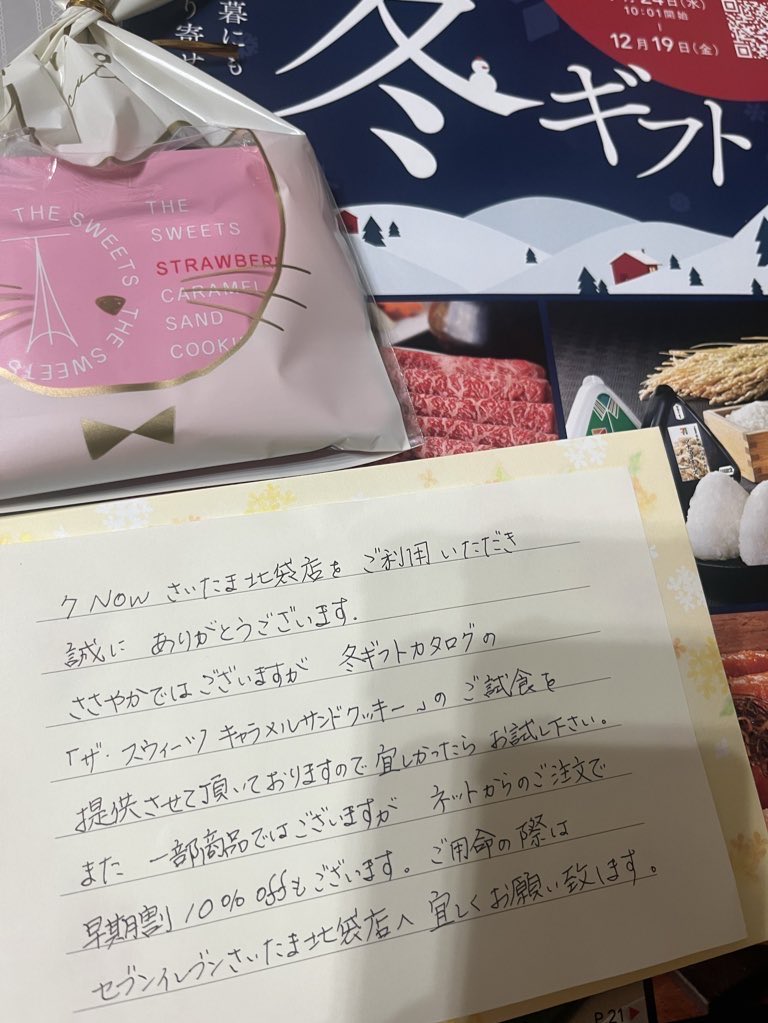 暮にも
り寄せ
24日(水)
10:01開始
12月19日(金)
冬ギフト
THE SWEETS THE SWEETS
THE
SWEETS
STRAWBER
CARAMEL
SAND
COOKI
7 NOW さいたま北袋店を ご利用いただき
誠に ありがとうございます.
ささやかではございますが 冬ギフトカタログの
「ザ・スウィーツ キャラメルサンドクッキー」の ご試食を
提供させて頂いておりますので 宜しかったら お試し下さい。
また 一部商品ではございますが ネットからのご注文で
早期割 10% offもございます。ご用命の際は
セブンイレブンさいたま北袋店へ 宜しくお願い致します。
P.21